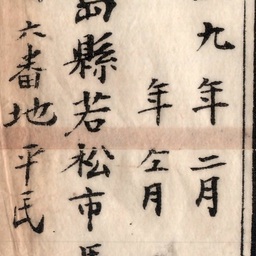 九年二月
年 月
島縣若松市馬
六番地平民